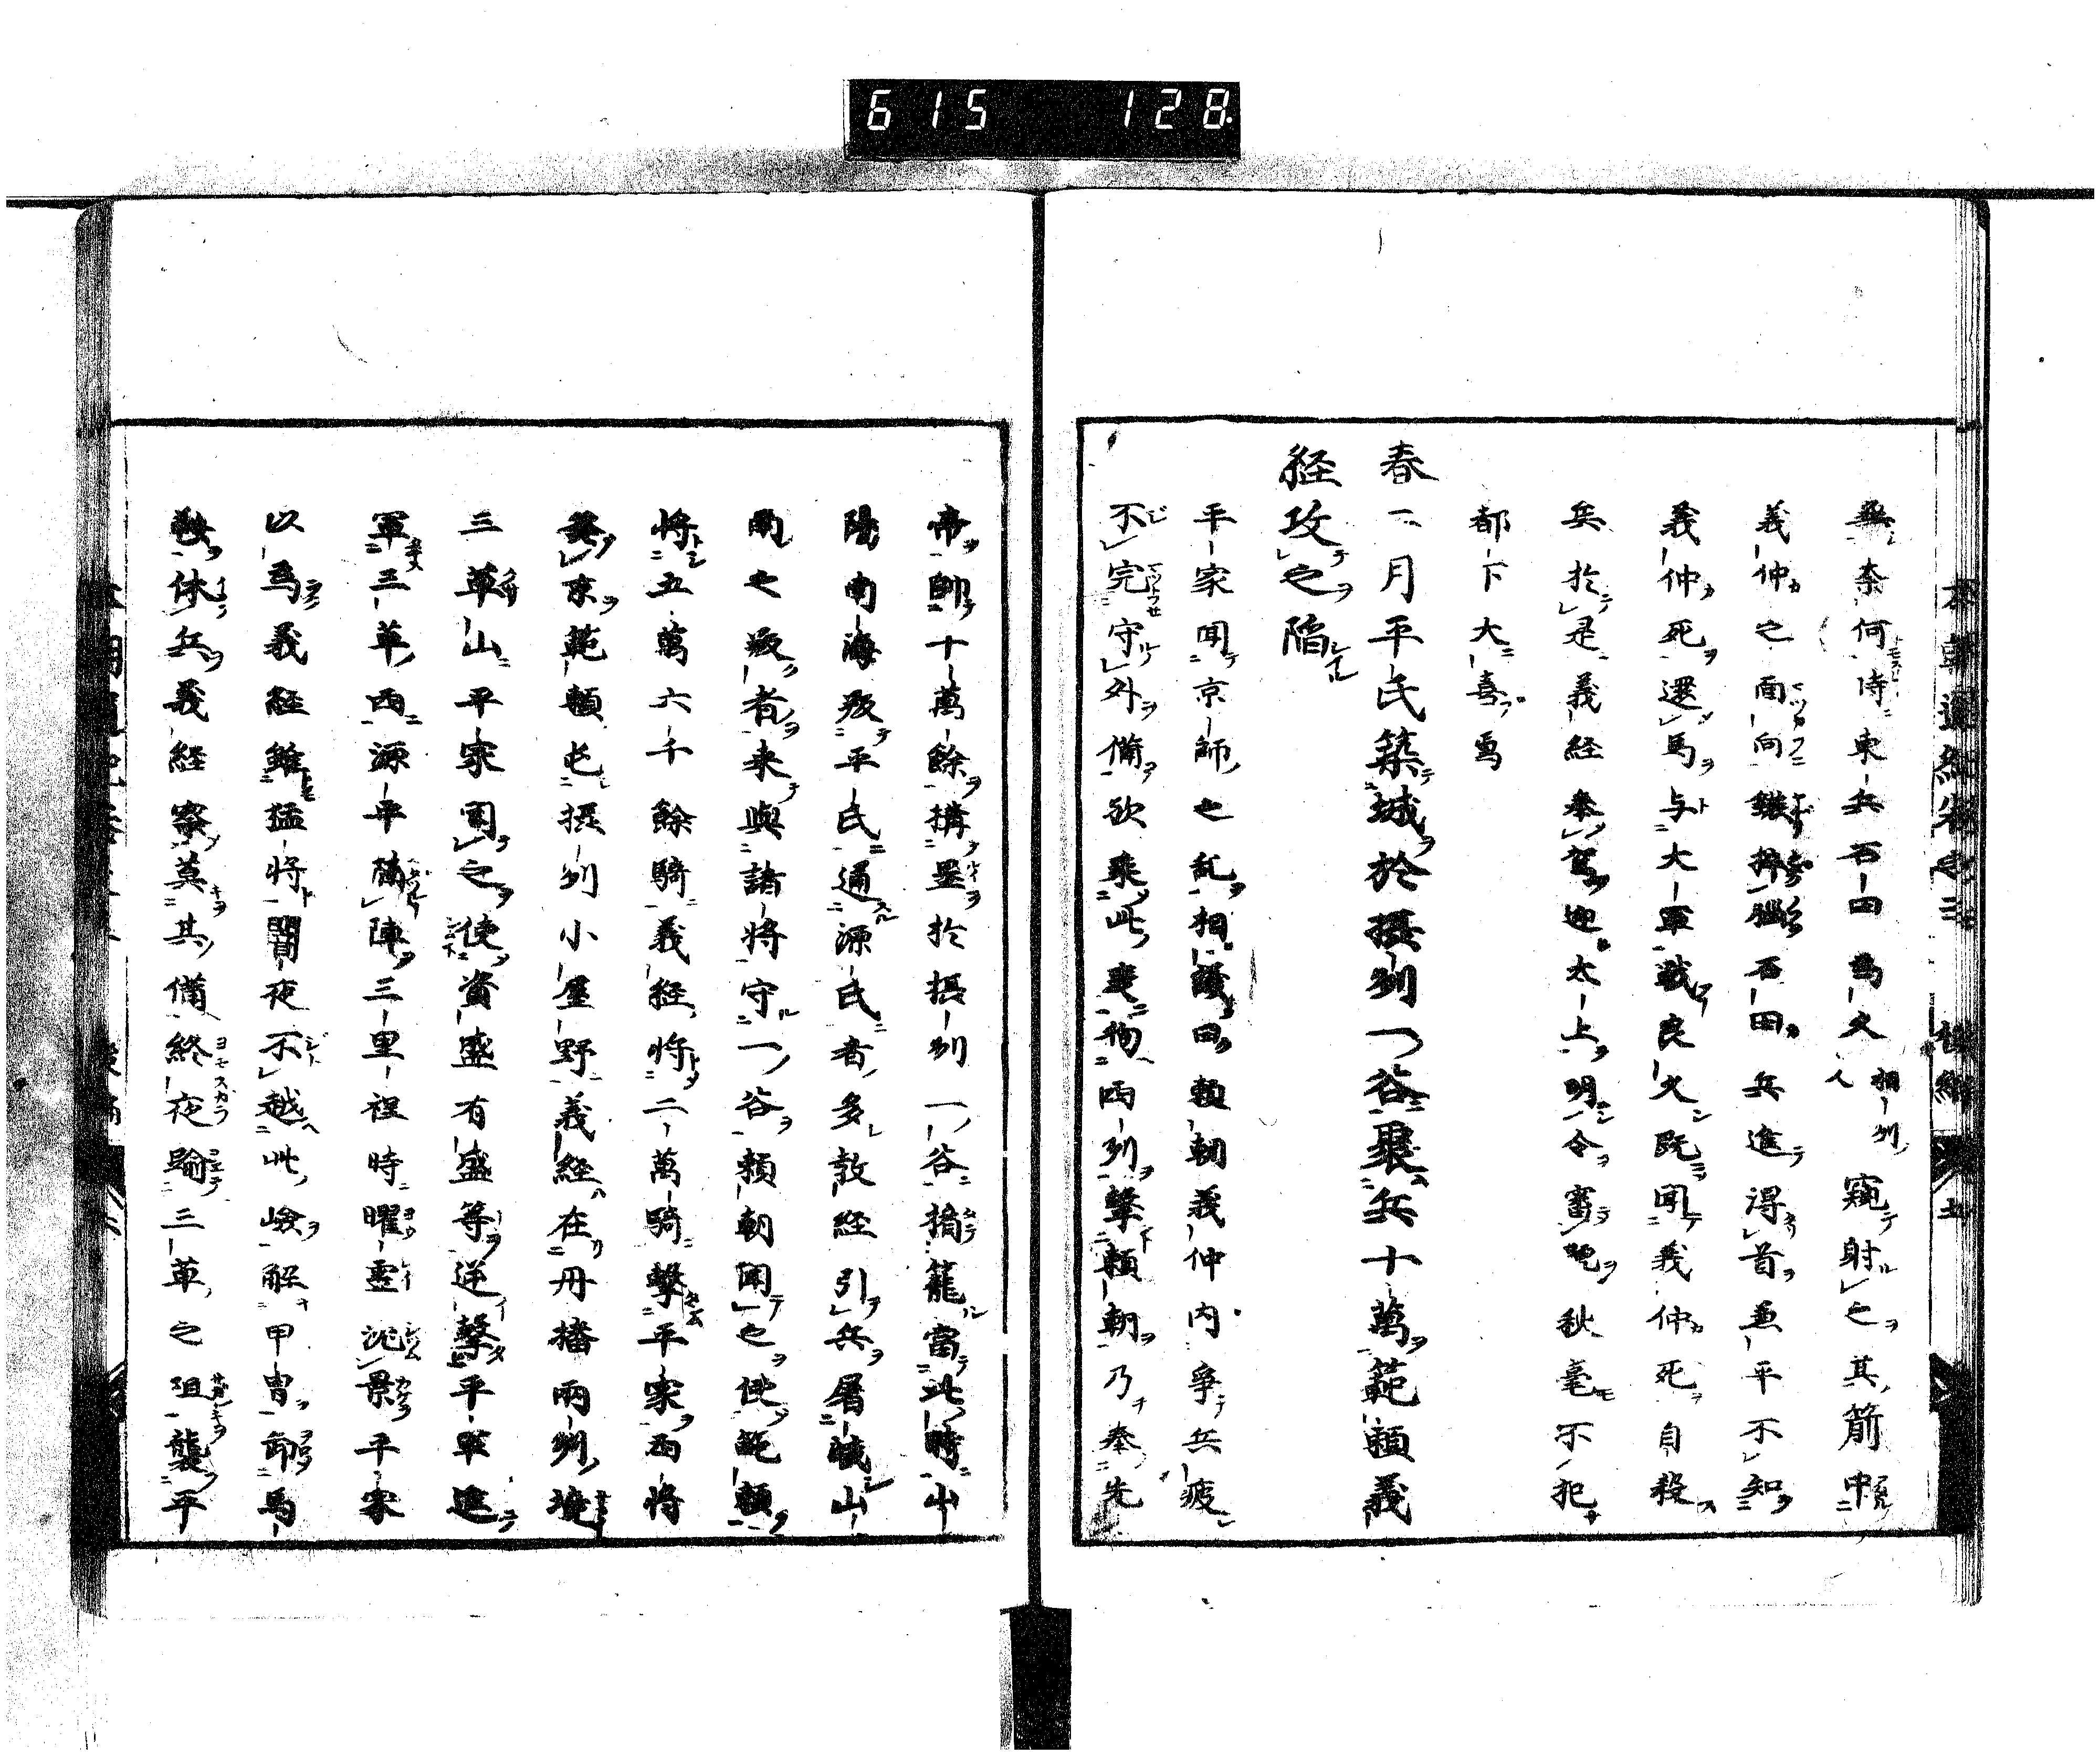 615 128
無奈何時東兵石田為久相州人窺射之其箭中
義仲之面向鐵搾腦石田兵進得首兼平不知
義仲死還馬与大軍戦良久既聞義仲死自殺
兵於是義経奉駕迎太上明令審乱秋毫不犯
都下大喜焉
春二月平氏築城於摂州一谷聚兵十萬範頼義
経攻之陥
平家聞京師之乱相議曰頼朝義仲内争兵疲
不完守外備欲乗此衰徇西州撃頼朝乃奉先
帝帥十萬餘搆塁於摂州一谷擕籠當此時山
陽南海叛平氏通源氏者多教経引兵屠滅山
南之叛者来與諸将守一谷頼朝聞之使範頼
将五萬六千餘騎義経将二萬騎撃平家両将
発京範頼屯摂州小屋野義経在丹播兩州境
三草山平家聞之使資盛有盛等逆撃平軍進
軍三草西源平隔陣三里裎時曜霊沈景平家
以為義経雖猛将闇夜不越此嶮解甲冑卸馬
鞍休兵義経察莫其備終夜踰三草之阻襲平